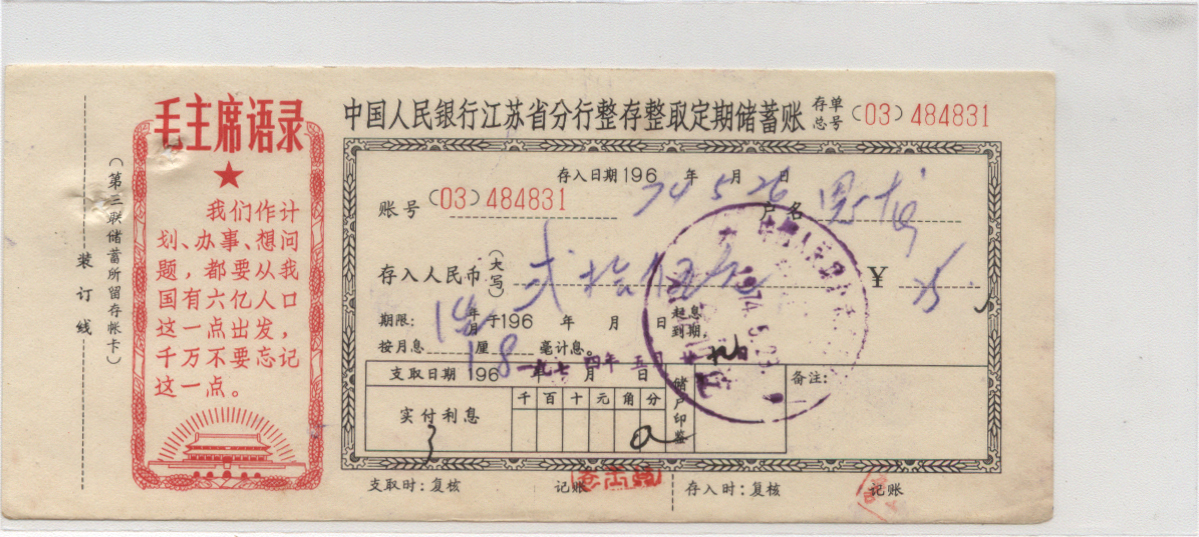 (第三联储蓄所留存帐卡)
装订线
毛主席语录
我们作计
划、办事、想问
题，都要从我
国有六亿人口
这一点出发，
千万不要忘记
这一点。
中国人民银行江苏省分行整存整取定期储蓄账 存单总号 (03) 484831
存入日期196 年 月 日
74 5 26
账号 (03) 484831 户名
存入人民币(大写) 贰拾伍元 ¥
期限: 1 年月 于196 年 月 日 起息到期。
按月息 厘 毫计息。
18
支取日期 196 年 月 日 储户印鉴 备注:
一九七四年五月
千 百 十 元 角 分
实付利息
1974.5.26
支取时: 复核 记账 存入时: 复核 记账